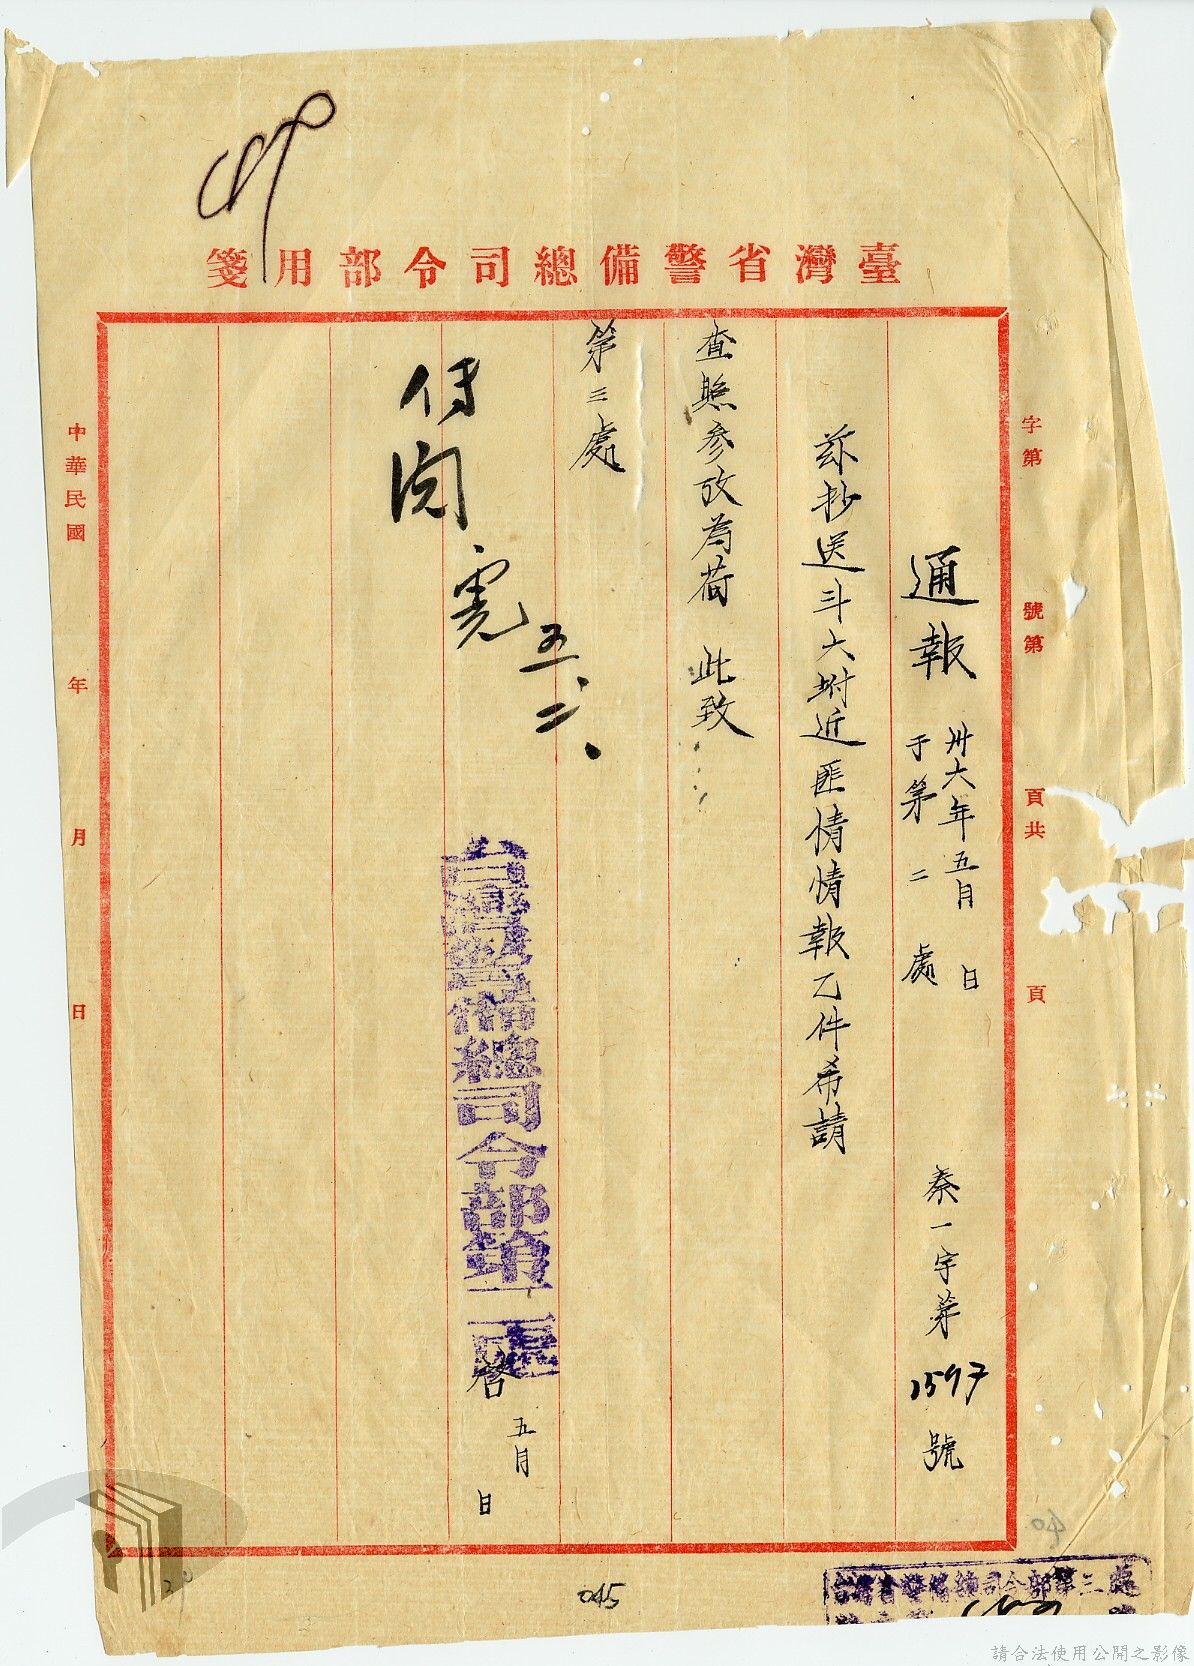 臺灣省警備總司令部用箋
字第　號第　頁共　頁
通報
卅六年五月　日
于第二處
秦一字第1597號
茲抄送斗六附近匪情情報乙件希請
查照參攷為荷　此致
第三處
台灣警備總司令部第二處
啓
五月　日
傳閱
五、二、
中華民國　年　月　日
045
40
台灣省警備總司令部第三處
請合法使用公開之影像